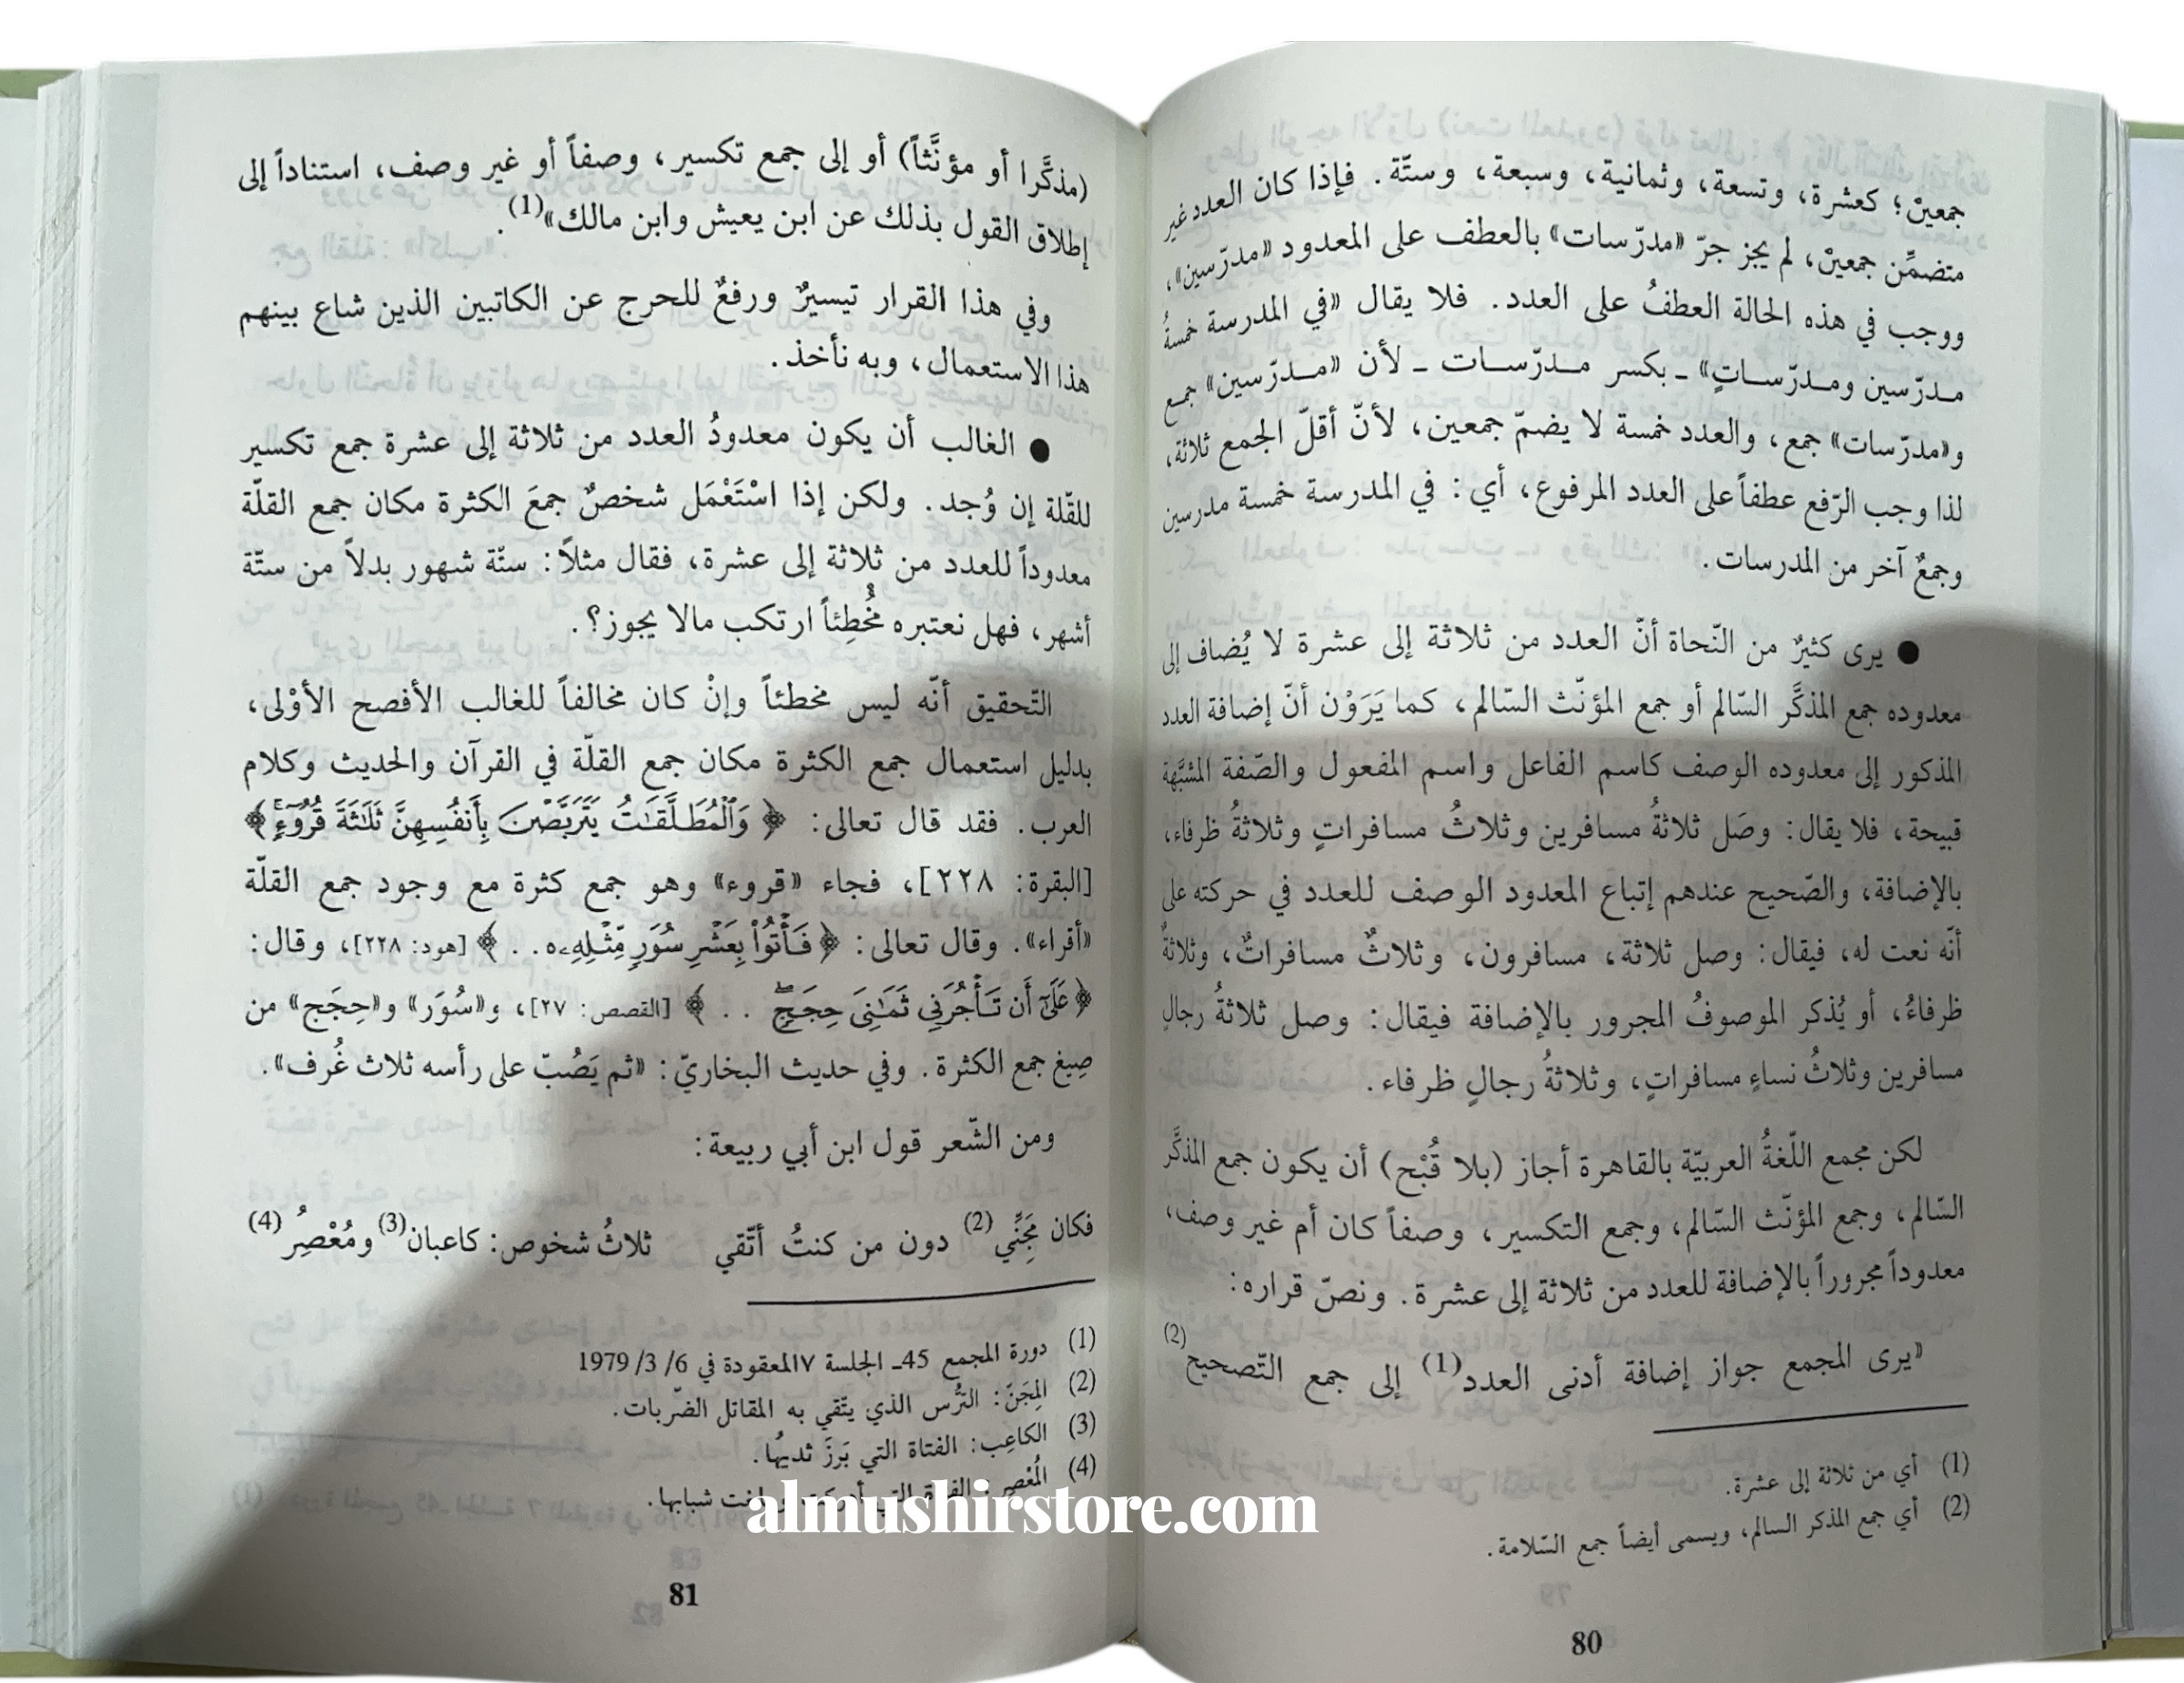 جمعينْ؛ كعشرة، وتسعة، وثمانية، وسبعة، وستّة. فإذا كان العدد غير
متضمِّن جمعينْ، لم يجز جرّ «مدرّسات» بالعطف على المعدود «مدرّسين»،
ووجب في هذه الحالة العطفُ على العدد. فلا يقال «في المدرسة خمسةُ
مـدرّسين ومـدرّسـاتٍ» ـ بكسر مـدرّسـات ـ لأن «مـدرّسين» جمع
و«مدرّسات» جمع، والعدد خمسة لا يضمّ جمعين، لأنّ أقلّ الجمع ثلاثة،
لذا وجب الرّفع عطفاً على العدد المرفوع، أي: في المدرسة خمسة مدرسين
وجمعٌ آخر من المدرسات.
● يرى كثيرٌ من النّحاة أنّ العدد من ثلاثة إلى عشرة لا يُضاف إلى
معدوده جمع المذكَّر السّالم أو جمع المؤنّث السّالم، كما يَرَوْن أنّ إضافة العدد
المذكور إلى معدوده الوصف كاسم الفاعل واسم المفعول والصّفة المشبَّهة
قبيحة، فلا يقال: وصَل ثلاثةُ مسافرين وثلاثُ مسافراتٍ وثلاثةُ ظرفاء،
بالإضافة، والصّحيح عندهم إتباع المعدود الوصف للعدد في حركته على
أنّه نعت له، فيقال: وصل ثلاثة، مسافرون، وثلاثٌ مسافراتٌ، وثلاثةٌ
ظرفاءُ، أو يُذكر الموصوفُ المجرور بالإضافة فيقال: وصل ثلاثةُ رجالٍ
مسافرين وثلاثُ نساءٍ مسافراتٍ، وثلاثةُ رجالٍ ظرفاء.
لكن مجمع اللّغةُ العربيّة بالقاهرة أجاز (بلا قُبْح) أن يكون جمع المذكَّر
السّالم، وجمع المؤنّث السّالم، وجمع التكسير، وصفاً كان أم غير وصف،
معدوداً مجروراً بالإضافة للعدد من ثلاثة إلى عشرة. ونصّ قراره:
«يرى المجمع جواز إضافة أدنى العدد(1) إلى جمع التّصحيح(2)
(1) أي من ثلاثة إلى عشرة.
(2) أي جمع المذكر السالم، ويسمى أيضاً جمع السّلامة.
80
(مذكَّرا أو مؤنَّثاً) أو إلى جمع تكسير، وصفاً أو غير وصف، استناداً إلى
إطلاق القول بذلك عن ابن يعيش وابن مالك»(1).
وفي هذا القرار تيسيرٌ ورفعٌ للحرج عن الكاتبين الذين شاع بينهم
هذا الاستعمال، وبه نأخذ.
● الغالب أن يكون معدودُ العدد من ثلاثة إلى عشرة جمع تكسير
للقّلة إن وُجد. ولكن إذا اسْتَعْمَل شخصٌ جمعَ الكثرة مكان جمع القلّة
معدوداً للعدد من ثلاثة إلى عشرة، فقال مثلاً: ستّة شهور بدلاً من ستّة
أشهر، فهل نعتبره مُخْطِئاً ارتكب مالا يجوز؟.
التّحقيق أنّه ليس مخطئاً وإنْ كان مخالفاً للغالب الأفصح الأوْلى،
بدليل استعمال جمع الكثرة مكان جمع القلّة في القرآن والحديث وكلام
العرب. فقد قال تعالى: ﴿ وَٱلْمُطَلَّقَٰتُ يَتَرَبَّصْنَ بِأَنفُسِهِنَّ ثَلَٰثَةَ قُرُوٓءٍۚ ﴾
[البقرة: ٢٢٨]، فجاء «قروء» وهو جمع كثرة مع وجود جمع القلّة
«أقراء». وقال تعالى: ﴿ فَأْتُوا۟ بِعَشْرِ سُوَرٍ مِّثْلِهِۦ . . ﴾ [هود: ٢٢٨]، وقال:
﴿ عَلَىٰٓ أَن تَأْجُرَنِى ثَمَٰنِىَ حِجَجٍۖ . . ﴾ [القصص: ٢٧]، و«سُوَر» و«حِجَج» من
صِيغ جمع الكثرة. وفي حديث البخاريّ: «ثم يَصُبّ على رأسه ثلاث غُرف».
ومن الشّعر قول ابن أبي ربيعة:
فكان مِجَنِّي(2) دون من كنتُ أتّقي ثلاثُ شخوص: كاعبان(3) ومُعْصِرُ(4)
(1) دورة المجمع 45ـ الجلسة ٧المعقودة في 6/ 3/ 1979
(2) المِجَنّ: التُّرْس الذي يتّقي به المقاتل الضّربات.
(3) الكاعِب: الفتاة التي بَرزَ ثديُها.
(4) المُعْصِر: الفتاة التي أدركت وبلغت شبابها.
81
almushirstore.com